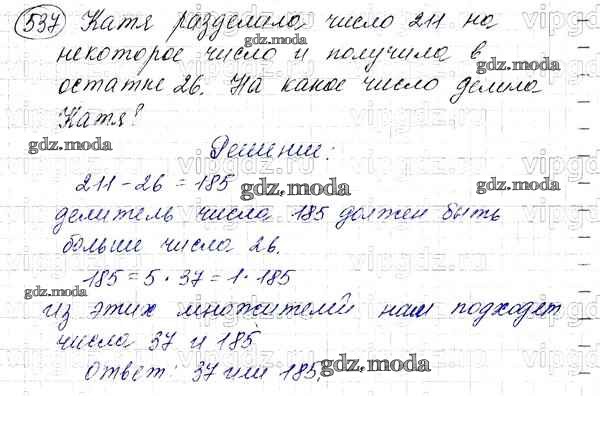 537 Катя разделила число 211 на
некоторое число и получила в
остатке 26. На какое число делила
Катя?
Решение:
211 - 26 = 185
делитель числа 185 должен быть
больше числа 26.
185 = 5 · 37 = 1 · 185
Из этих множителей нам подходят
числа 37 и 185
Ответ: 37 или 185.
gdz.moda
gdz.moda
gdz.moda
gdz.moda
gdz.moda
gdz.moda
gdz.moda
gdz.moda